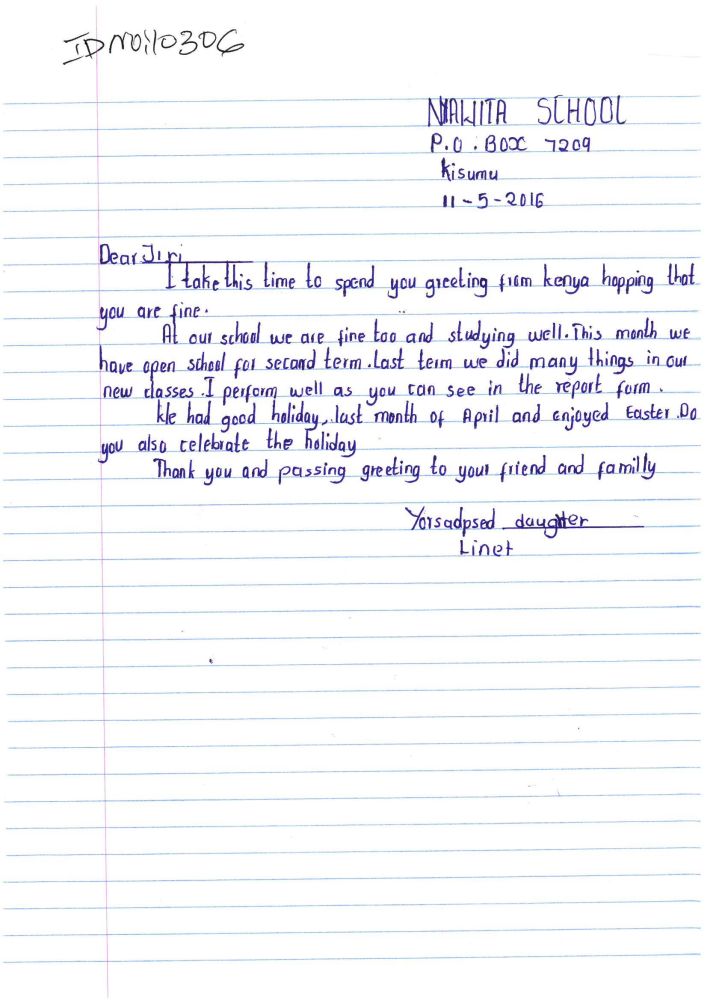 IDNO:10306
NYAWITA SCHOOL
P.O. BOX 7209
Kisumu
11-5-2016
Dear Jiri
I take this time to spend you greeting from kenya hopping that
you are fine.
At our school we are fine too and studying well. This month we
have open school for second term. last term we did many things in our
new classes. I perform well as you can see in the report form.
We had good holiday, last month of April and enjoyed Easter. Do
you also celebrate the holiday
Thank you and passing greeting to your friend and familly
Yorsadpsed daughter
Linet